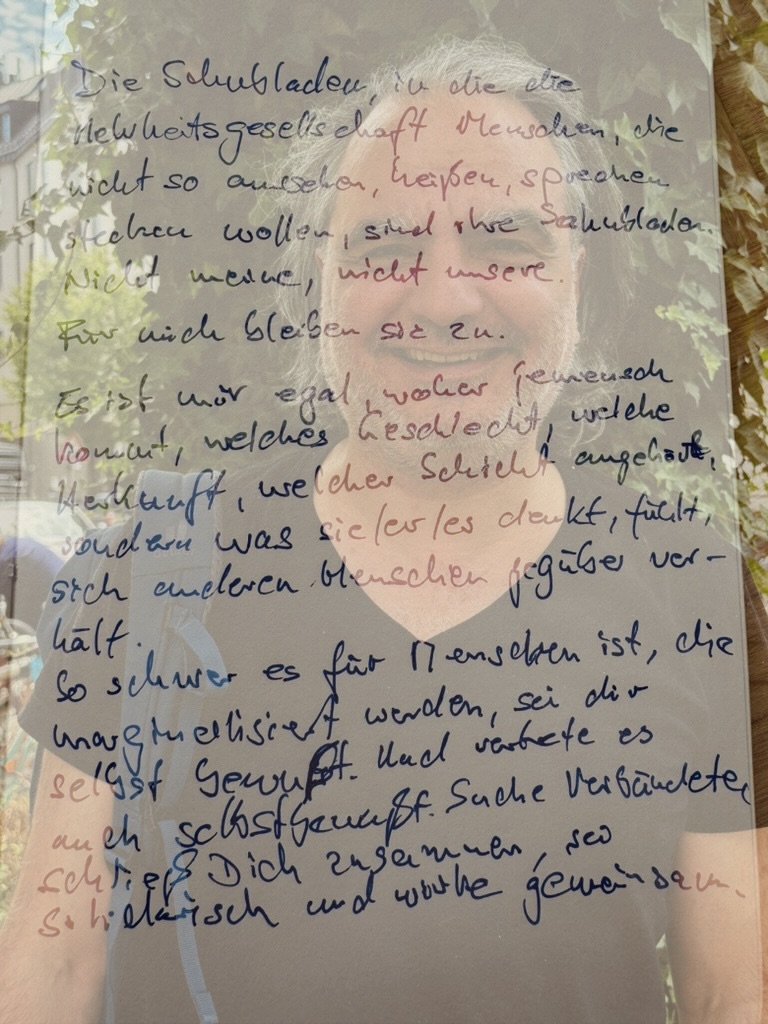 Die Schubladen, in die die
Mehrheitsgesellschaft Menschen, die
nicht so aussehen, heißen, sprechen
stecken wollen, sind ihre Schubladen.
Nicht meine, nicht unsere.
Für mich bleiben sie zu.
Es ist mir egal, woher jemensch
kommt, welches Geschlecht, welche
Herkunft, welcher Schicht angehört,
sondern was sie/er/es denkt, fühlt,
sich anderen Menschen gegüber ver-
hält.
So schwer es für Menschen ist, die
marginalisiert werden, sei dir
selbst bewußt. Und vertrete es
auch selbstbewußt. Suche Verbündete,
schließ Dich zusammen, sei
solidarisch und wirke gemeinsam.